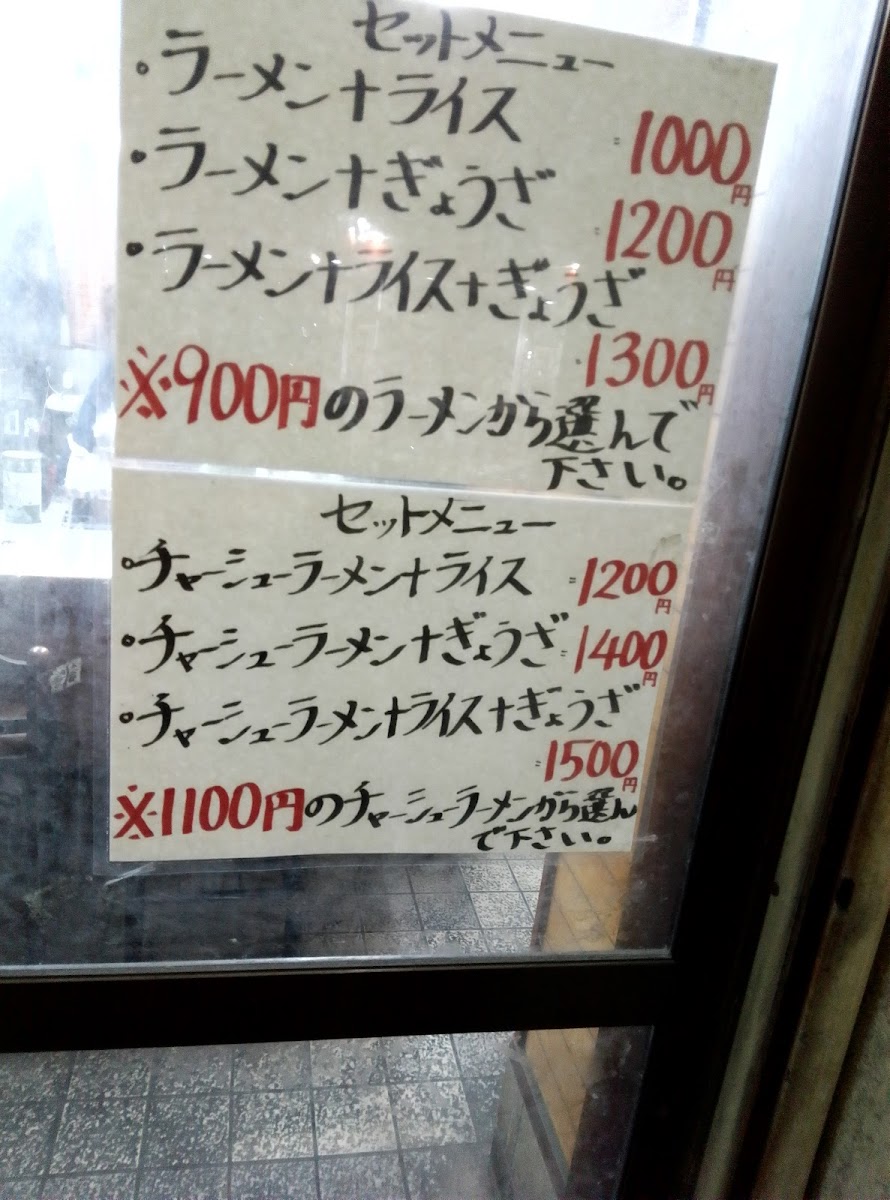 セットメニュー
・ラーメン+ライス
=1000円
・ラーメン+ぎょうざ
=1200円
・ラーメン+ライス+ぎょうざ
=1300円
※900円のラーメンから選んで
下さい。
セットメニュー
・チャーシューラーメン+ライス =1200円
・チャーシューラーメン+ぎょうざ=1400円
・チャーシューラーメン+ライス+ぎょうざ
=1500円
※1100円のチャーシューラーメンから選ん
で下さい。